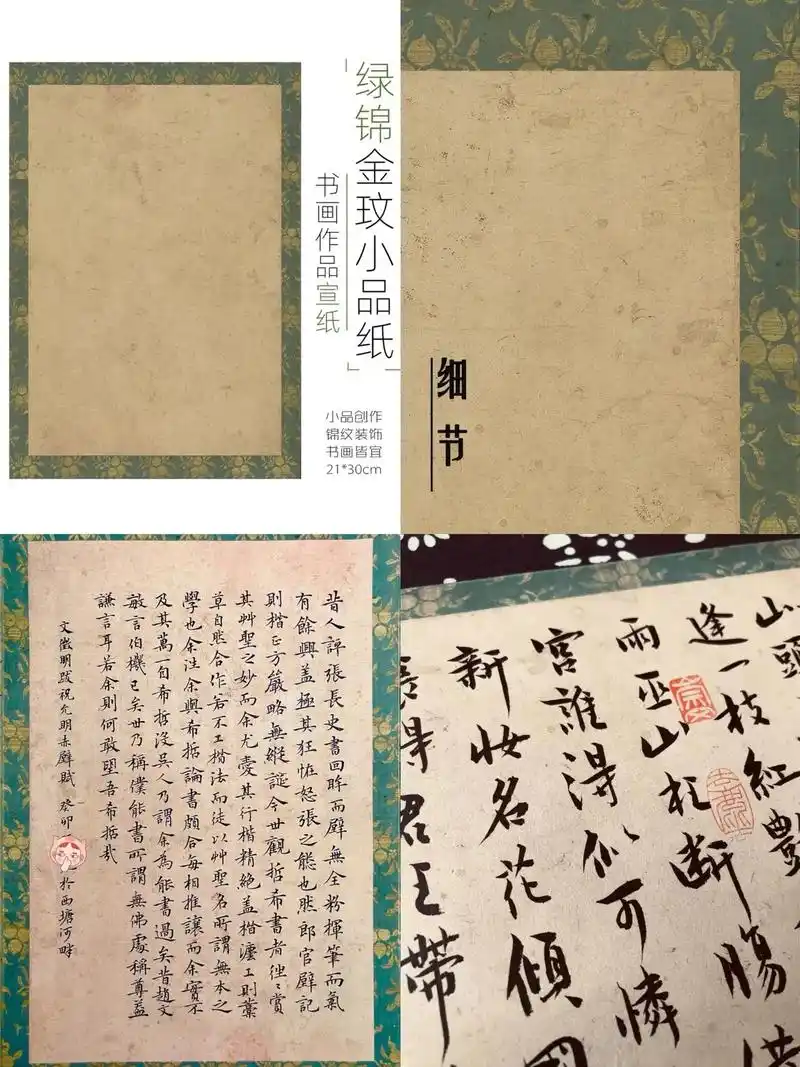 绿锦金玟小品纸
书画作品宣纸
小品创作
锦纹装饰
书画皆宜
21*30cm
细节
昔人評張長史書回眸而壁無全粉揮筆而氣
有餘興蓋極其狂恠怒張之態也然郎官壁記
則楷正方嚴略無縱誕今世觀哲希書者徃〻賞
其艸聖之妙而余尤愛其行楷精絕蓋楷灋工則藁
草自然合作若不工楷法而徒以艸聖名所謂無本之
學也余注余與希哲論書頗合每相推讓而余實不
及其萬一自希哲沒吳人乃謂余為能書過矣昔趙文
敏言伯機已矣世乃稱僕能書所謂無佛處稱尊蓋
謙言耳若余則何敢望吾希哲哉
文徵明跋祝允明赤壁賦 癸卯 於西塘河畔
山頭
逢一枝紅豔
雨巫山枉斷腸借
宮誰得似可憐
新妝名花傾國
長得君王帶